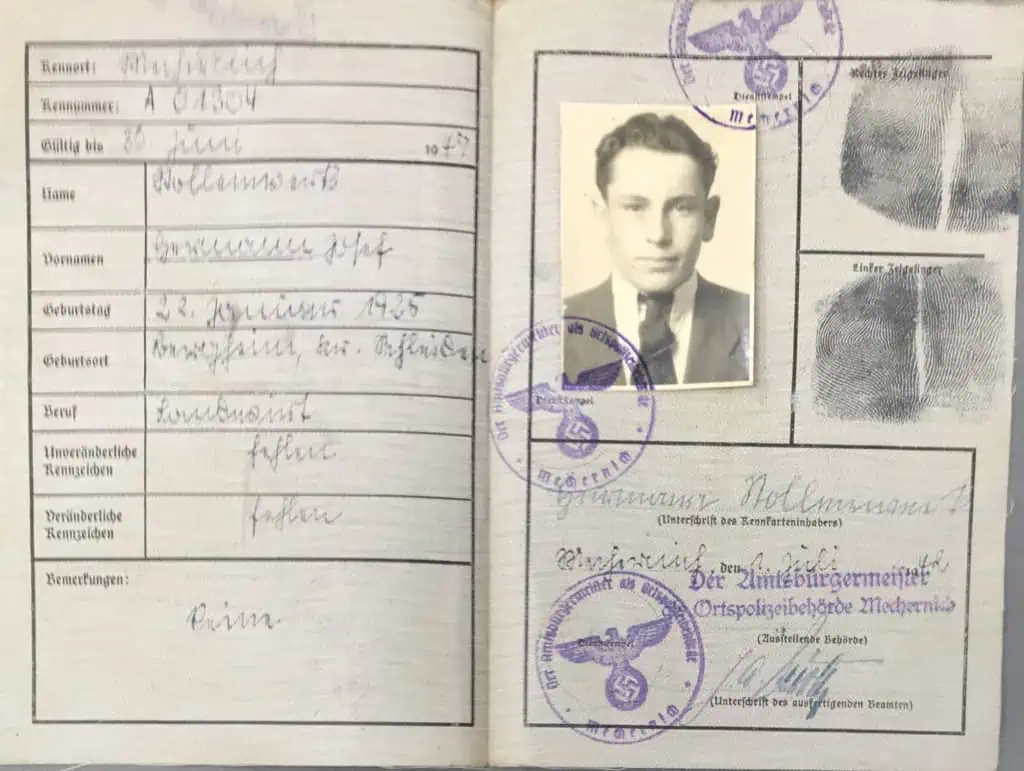 Kennort: Mechernich
Kennnummer: A 01304
Gültig bis 30 Juni 1947
Name
Vornamen Hermann Josef
Geburtstag 22. Januar 1925
Geburtsort Bergheim, Kr. Schleiden
Beruf Landwirt
Unveränderliche
Kennzeichen
fehlen
Veränderliche
Kennzeichen
fehlen
Bemerkungen:
Keine
Der Amtsbürgermeister als Ortspolizeibehörde
Dienststempel
* Mechernich *
Rechter Zeigefinger
Linker Zeigefinger
Der Amtsbürgermeister als Ortspolizeibehörde
Dienststempel
* Mechernich *
Hermann
(Unterschrift des Kennkarteninhabers)
Mechernich, den Juli
Der Amtsbürgermeister
Ortspolizeibehörde Mechernich
(Ausstellende Behörde)
Der Amtsbürgermeister als Ortspolizeibehörde
Dienststempel
* Mechernich *
(Unterschrift des ausfertigenden Beamten)